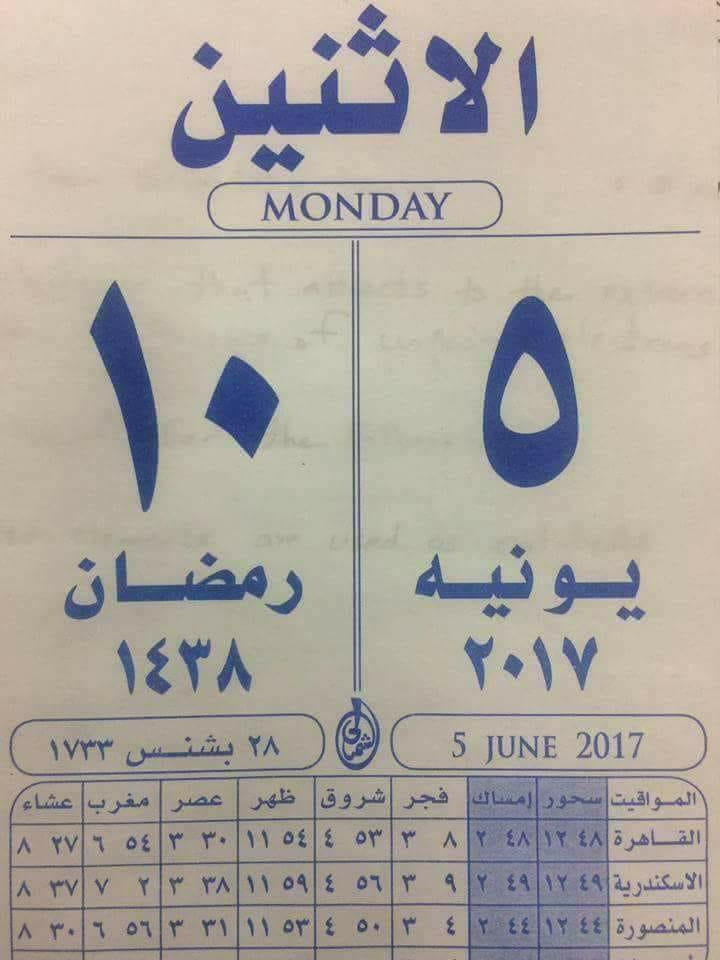 الاثنين
MONDAY
٥ ١٠
يونيه رمضان
٢٠١٧ ١٤٣٨
5 JUNE 2017 ٢٨ بشنس ١٧٣٣
المواقيت سحور إمساك فجر شروق ظهر عصر مغرب عشاء
القاهرة ٤٨ ١٢ ٤٨ ٢ ٨ ٣ ٥٣ ٤ ٥٤ ١١ ٣٠ ٣ ٥٤ ٦ ٢٧ ٨
الاسكندرية ٤٩ ١٢ ٤٩ ٢ ٩ ٣ ٥٦ ٤ ٥٩ ١١ ٣٨ ٣ ٢ ٧ ٣٧ ٨
المنصورة ٤٤ ١٢ ٤٤ ٢ ٤ ٣ ٥٠ ٤ ٥٣ ١١ ٣١ ٣ ٥٦ ٦ ٣٠ ٨